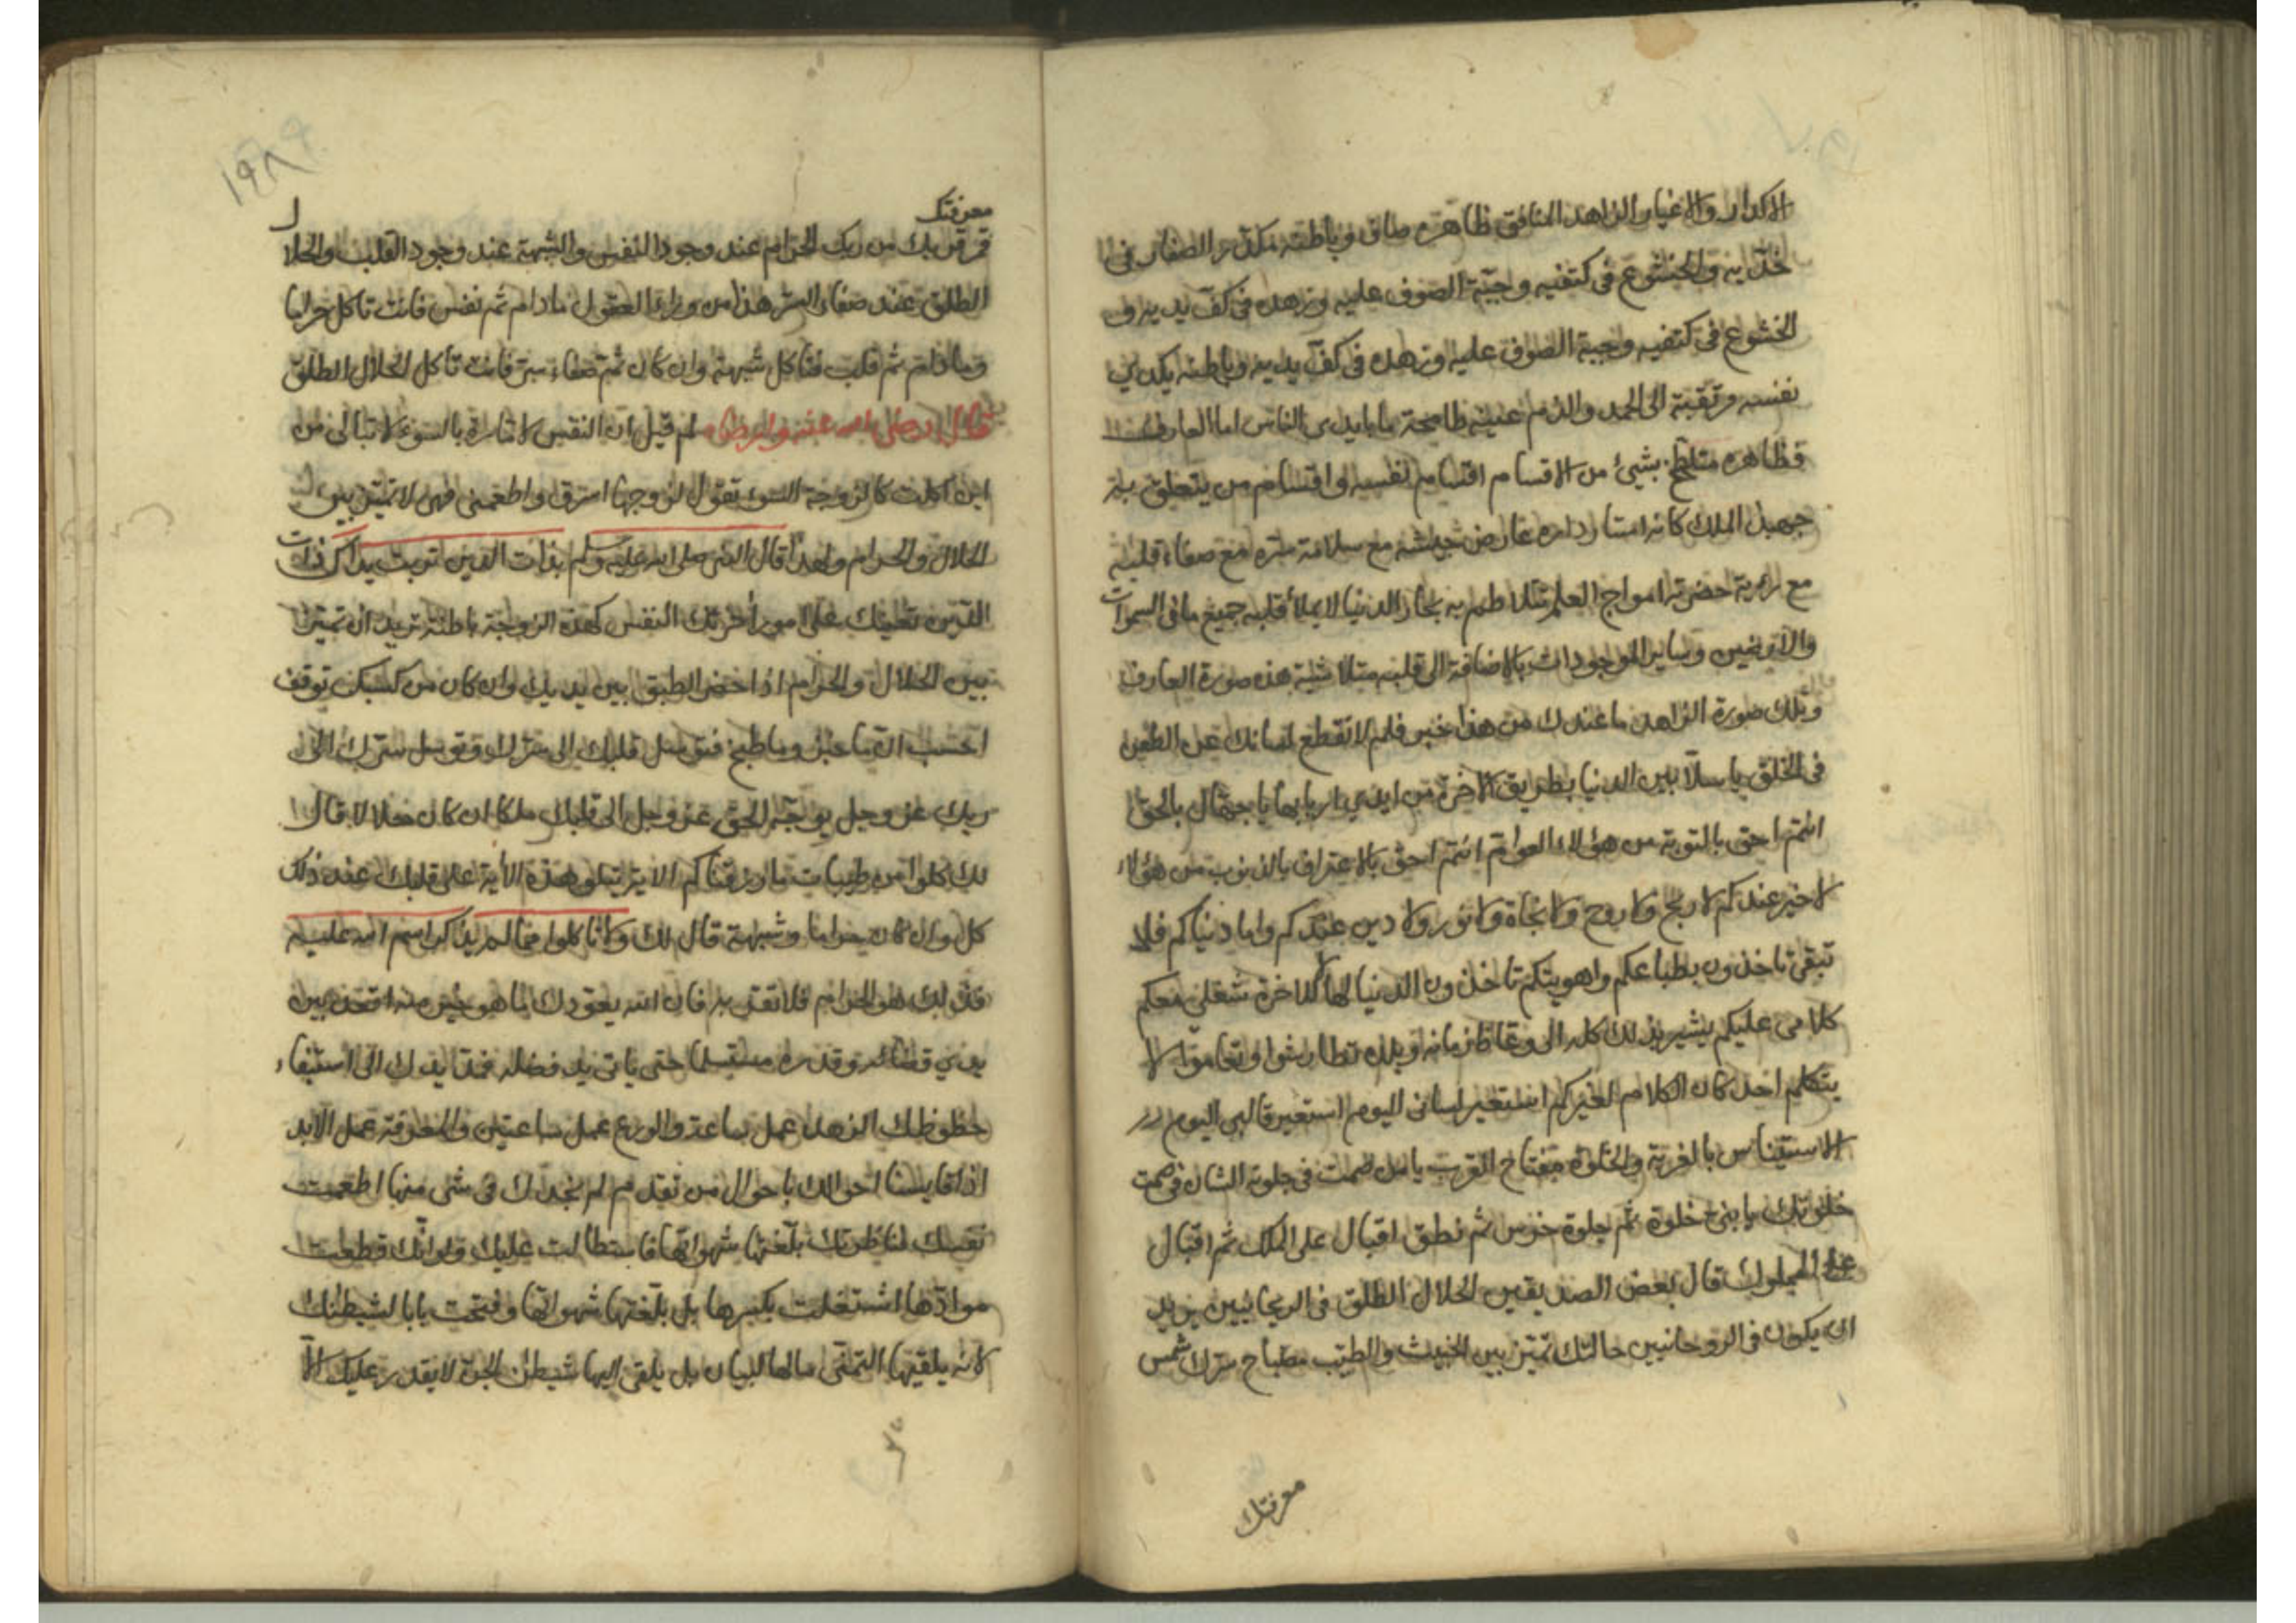 الاكدار والاغيار الزاهد المنافق ظاهره صاف وباطنه مكدر الصفار في
خديه والخشوع في كتفيه وجبة الصوف عليه وزهده في كف يديه و
الخشوع في كتفيه وجبة الصوف عليه وزهده في كف يديه وباطنه يكدي
نفسه مرتقبة الى الحمد والذم عينه طامحة ما بايدى الناس اما العارف
فظاهره متلطخ بشيئ من الاقسام اقسام نفسه واقسام من يتعلق به
جهبذ الملك كانه استاد داره عارض جيشه مع سلامة سره مع صفاء قلبه
مع امواج العلم تتلاطم به بحار الدنيا لا يملأ قلبه جميع ما فى السموات
والارضين وساير الموجودات بالاضافة الى قلبه متلاشية هذه صورة العارف
وتلك صورة الزاهد ما عندك من هذا خبر فلم لا تقطع لسانك عن الطعن
فى الخلق يا سلابين الدنيا بطريق الاخرة من ايدي اربابها يا جهال بالحق
انتم احق بالتوبة من هؤلاء العوام انتم احق بالاعتراف بالذنوب من هؤلاء
لا خير عندكم لا ربح ولا روح ولا نجاة ولا نور ولا دين عندكم واما دنياكم فلا
تبقى تاخذون بطباعكم واهويتكم تاخذون الدنيا لها لا للاخرة شغلي معكم
كلامى عليكم يشير بذلك كله الى وعاظ زمانه ويلك تطارشوا وتعاموا لا
يتكلم احد كان الكلام لغيركم استعير لسانى اليوم استعير قالبى اليوم
الاستيناس بالغربة والخلوة مفتاح القرب يا من صمت في جلوته الشان في صمت
خلوتك يا بني خلوة ثم جلوة خرس ثم نطق اقبال على الملك ثم اقبال
على المملوك قال بعض الصديقين الحلال الطلق في الريحانيين يريد
ان يكون فى الروحانيين حالتك تميز بين الخبيث والطيب مصباح سرك شمس
معرفتك
١٩٨
معرفتك
قمر قربك من ربك الحرام عند وجود النفس والشبهة عند وجود القلب والحلال
الطلق عند صفاء السر هذا من وراء العقول ما دام ثم نفس فانت تاكل حراما
وما دام ثم قلب فتاكل شبهة وان كان ثم صفاء سر فانت تاكل الحلال الطلق
قال رضى الله عنه وارضاه لم قيل ان النفس لامارة بالسوء لا تبالى من
اين اكلت كالزوجة السوء تقول لزوجها اسرق واطعمنى فهى لا تميز بين
الحلال والحرام ولهذا قال النبى صلى الله عليه وسلم بذات الدين تربت يداك ذات
الدين تعينك على امور اخرتك النفس كهذه الزوجة باطنه تريد ان تميز
بين الحلال والحرام اذا حضر الطبق بين يديك وان كان من كسبك توقف
احسب انه ما خبز وما طبخ فتوسل قلبك الى سرك وتوسل سرك الى
ربك عز وجل يوجه الحق عز وجل الى قلبك ملكا ان كان حلالا قال
لك كلوا من طيبات ما رزقناكم الاية يتلو هذه الأية على قلبك عند ذلك
كل وان كان حراما وشبهة قال لك ولا تاكلوا مما لم يذكر اسم الله عليه
هو الحرام فلا تقتد به فان الله يعوضك لما هو خير منه اقعد بين
يدي قضائه وقدره مستسلما حتى ياتى يد فضله فتمد يدك الى استيفاء
حظوظك الزهد عمل ساعة والورع عمل ساعتين والمعرفة عمل الابد
اذا قايسنا احوالك باحوال من تقدم لم نجدك في شى منها اطعمت
نفسك بلغتها شهواتها فاستطالت عليك ولو انك قطعت
موادها اشتغلت بكسرها بل بلغتها شهواتها وفتحت بابا لشيطنك
لانه يلقيها التمنى مالها لبيان بل يلقى اليها شيطن الجن لا يقدر عليك الا